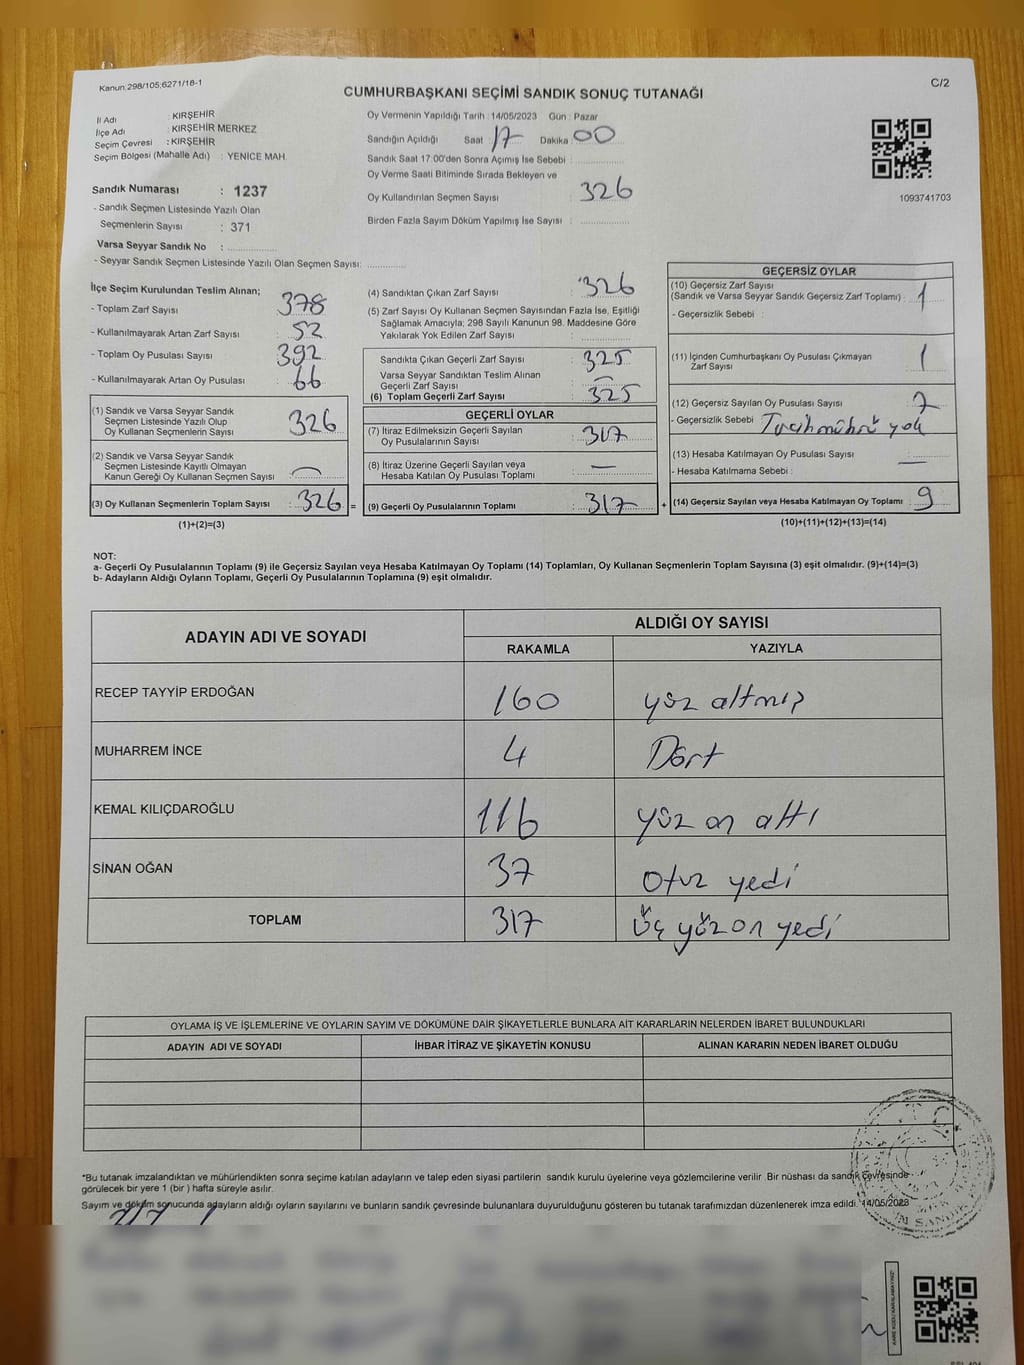 Kanun:298/105;6271/18-1
C/2
CUMHURBAŞKANI SEÇİMİ SANDIK SONUÇ TUTANAĞI
İl Adı : KIRŞEHİR
İlçe Adı : KIRŞEHİR MERKEZ
Seçim Çevresi : KIRŞEHİR
Seçim Bölgesi (Mahalle Adı) : YENİCE MAH.
Sandık Numarası : 1237
- Sandık Seçmen Listesinde Yazılı Olan
Seçmenlerin Sayısı : 371
Varsa Seyyar Sandık No :
- Seyyar Sandık Seçmen Listesinde Yazılı Olan Seçmen Sayısı:
Oy Vermenin Yapıldığı Tarih : 14/05/2023 Gün : Pazar
Sandığın Açıldığı Saat : 17 Dakika : 00
Sandık Saat 17:00'den Sonra Açımış İse Sebebi :
Oy Verme Saati Bitiminde Sırada Bekleyen ve
Oy Kullandırılan Seçmen Sayısı : 326
Birden Fazla Sayım Döküm Yapılmış İse Sayısı :
1093741703
İlçe Seçim Kurulundan Teslim Alınan;
- Toplam Zarf Sayısı : 378
- Kullanılmayarak Artan Zarf Sayısı : 52
- Toplam Oy Pusulası Sayısı : 392
- Kullanılmayarak Artan Oy Pusulası : 66
(1) Sandık ve Varsa Seyyar Sandık
Seçmen Listesinde Yazılı Olup
Oy Kullanan Seçmenlerin Sayısı : 326
(2) Sandık ve Varsa Seyyar Sandık
Seçmen Listesinde Kayıtlı Olmayan
Kanun Gereği Oy Kullanan Seçmen Sayısı : —
(3) Oy Kullanan Seçmenlerin Toplam Sayısı : 326 =
(1)+(2)=(3)
(4) Sandıktan Çıkan Zarf Sayısı : 326
(5) Zarf Sayısı Oy Kullanan Seçmen Sayısından Fazla İse, Eşitliği
Sağlamak Amacıyla; 298 Sayılı Kanunun 98. Maddesine Göre
Yakılarak Yok Edilen Zarf Sayısı :
Sandıkta Çıkan Geçerli Zarf Sayısı : 325
Varsa Seyyar Sandıktan Teslim Alınan
Geçerli Zarf Sayısı : —
(6) Toplam Geçerli Zarf Sayısı : 325
GEÇERLİ OYLAR
(7) İtiraz Edilmeksizin Geçerli Sayılan
Oy Pusulalarının Sayısı : 317
(8) İtiraz Üzerine Geçerli Sayılan veya
Hesaba Katılan Oy Pusulası Toplamı : —
(9) Geçerli Oy Pusulalarının Toplamı : 317 +
GEÇERSİZ OYLAR
(10) Geçersiz Zarf Sayısı
(Sandık ve Varsa Seyyar Sandık Geçersiz Zarf Toplamı) : 1
- Geçersizlik Sebebi :
(11) İçinden Cumhurbaşkanı Oy Pusulası Çıkmayan
Zarf Sayısı : 1
(12) Geçersiz Sayılan Oy Pusulası Sayısı : 7
- Geçersizlik Sebebi : Tercih mührü yok
(13) Hesaba Katılmayan Oy Pusulası Sayısı : —
- Hesaba Katılmama Sebebi :
(14) Geçersiz Sayılan veya Hesaba Katılmayan Oy Toplamı : 9
(10)+(11)+(12)+(13)=(14)
NOT:
a- Geçerli Oy Pusulalarının Toplamı (9) ile Geçersiz Sayılan veya Hesaba Katılmayan Oy Toplamı (14) Toplamları, Oy Kullanan Seçmenlerin Toplam Sayısına (3) eşit olmalıdır. (9)+(14)=(3)
b- Adayların Aldığı Oyların Toplamı, Geçerli Oy Pusulalarının Toplamına (9) eşit olmalıdır.
ADAYIN ADI VE SOYADI ALDIĞI OY SAYISI
RAKAMLA YAZIYLA
RECEP TAYYİP ERDOĞAN 160 yüz altmış
MUHARREM İNCE 4 Dört
KEMAL KILIÇDAROĞLU 116 yüz on altı
SİNAN OĞAN 37 otuz yedi
TOPLAM 317 üç yüz on yedi
OYLAMA İŞ VE İŞLEMLERİNE VE OYLARIN SAYIM VE DÖKÜMÜNE DAİR ŞİKAYETLERLE BUNLARA AİT KARARLARIN NELERDEN İBARET BULUNDUKLARI
ADAYIN ADI VE SOYADI İHBAR İTİRAZ VE ŞİKAYETİN KONUSU ALINAN KARARIN NEDEN İBARET OLDUĞU
*Bu tutanak imzalandıktan ve mühürlendikten sonra seçime katılan adayların ve talep eden siyasi partilerin sandık kurulu üyelerine veya gözlemcilerine verilir. Bir nüshası da sandık çevresinde
görülecek bir yere 1 (bir) hafta süreyle asılır.
Sayım ve döküm sonucunda adayların aldığı oyların sayılarını ve bunların sandık çevresinde bulunanlara duyurulduğunu gösteren bu tutanak tarafımızdan düzenlenerek imza edildi. 14/05/2023